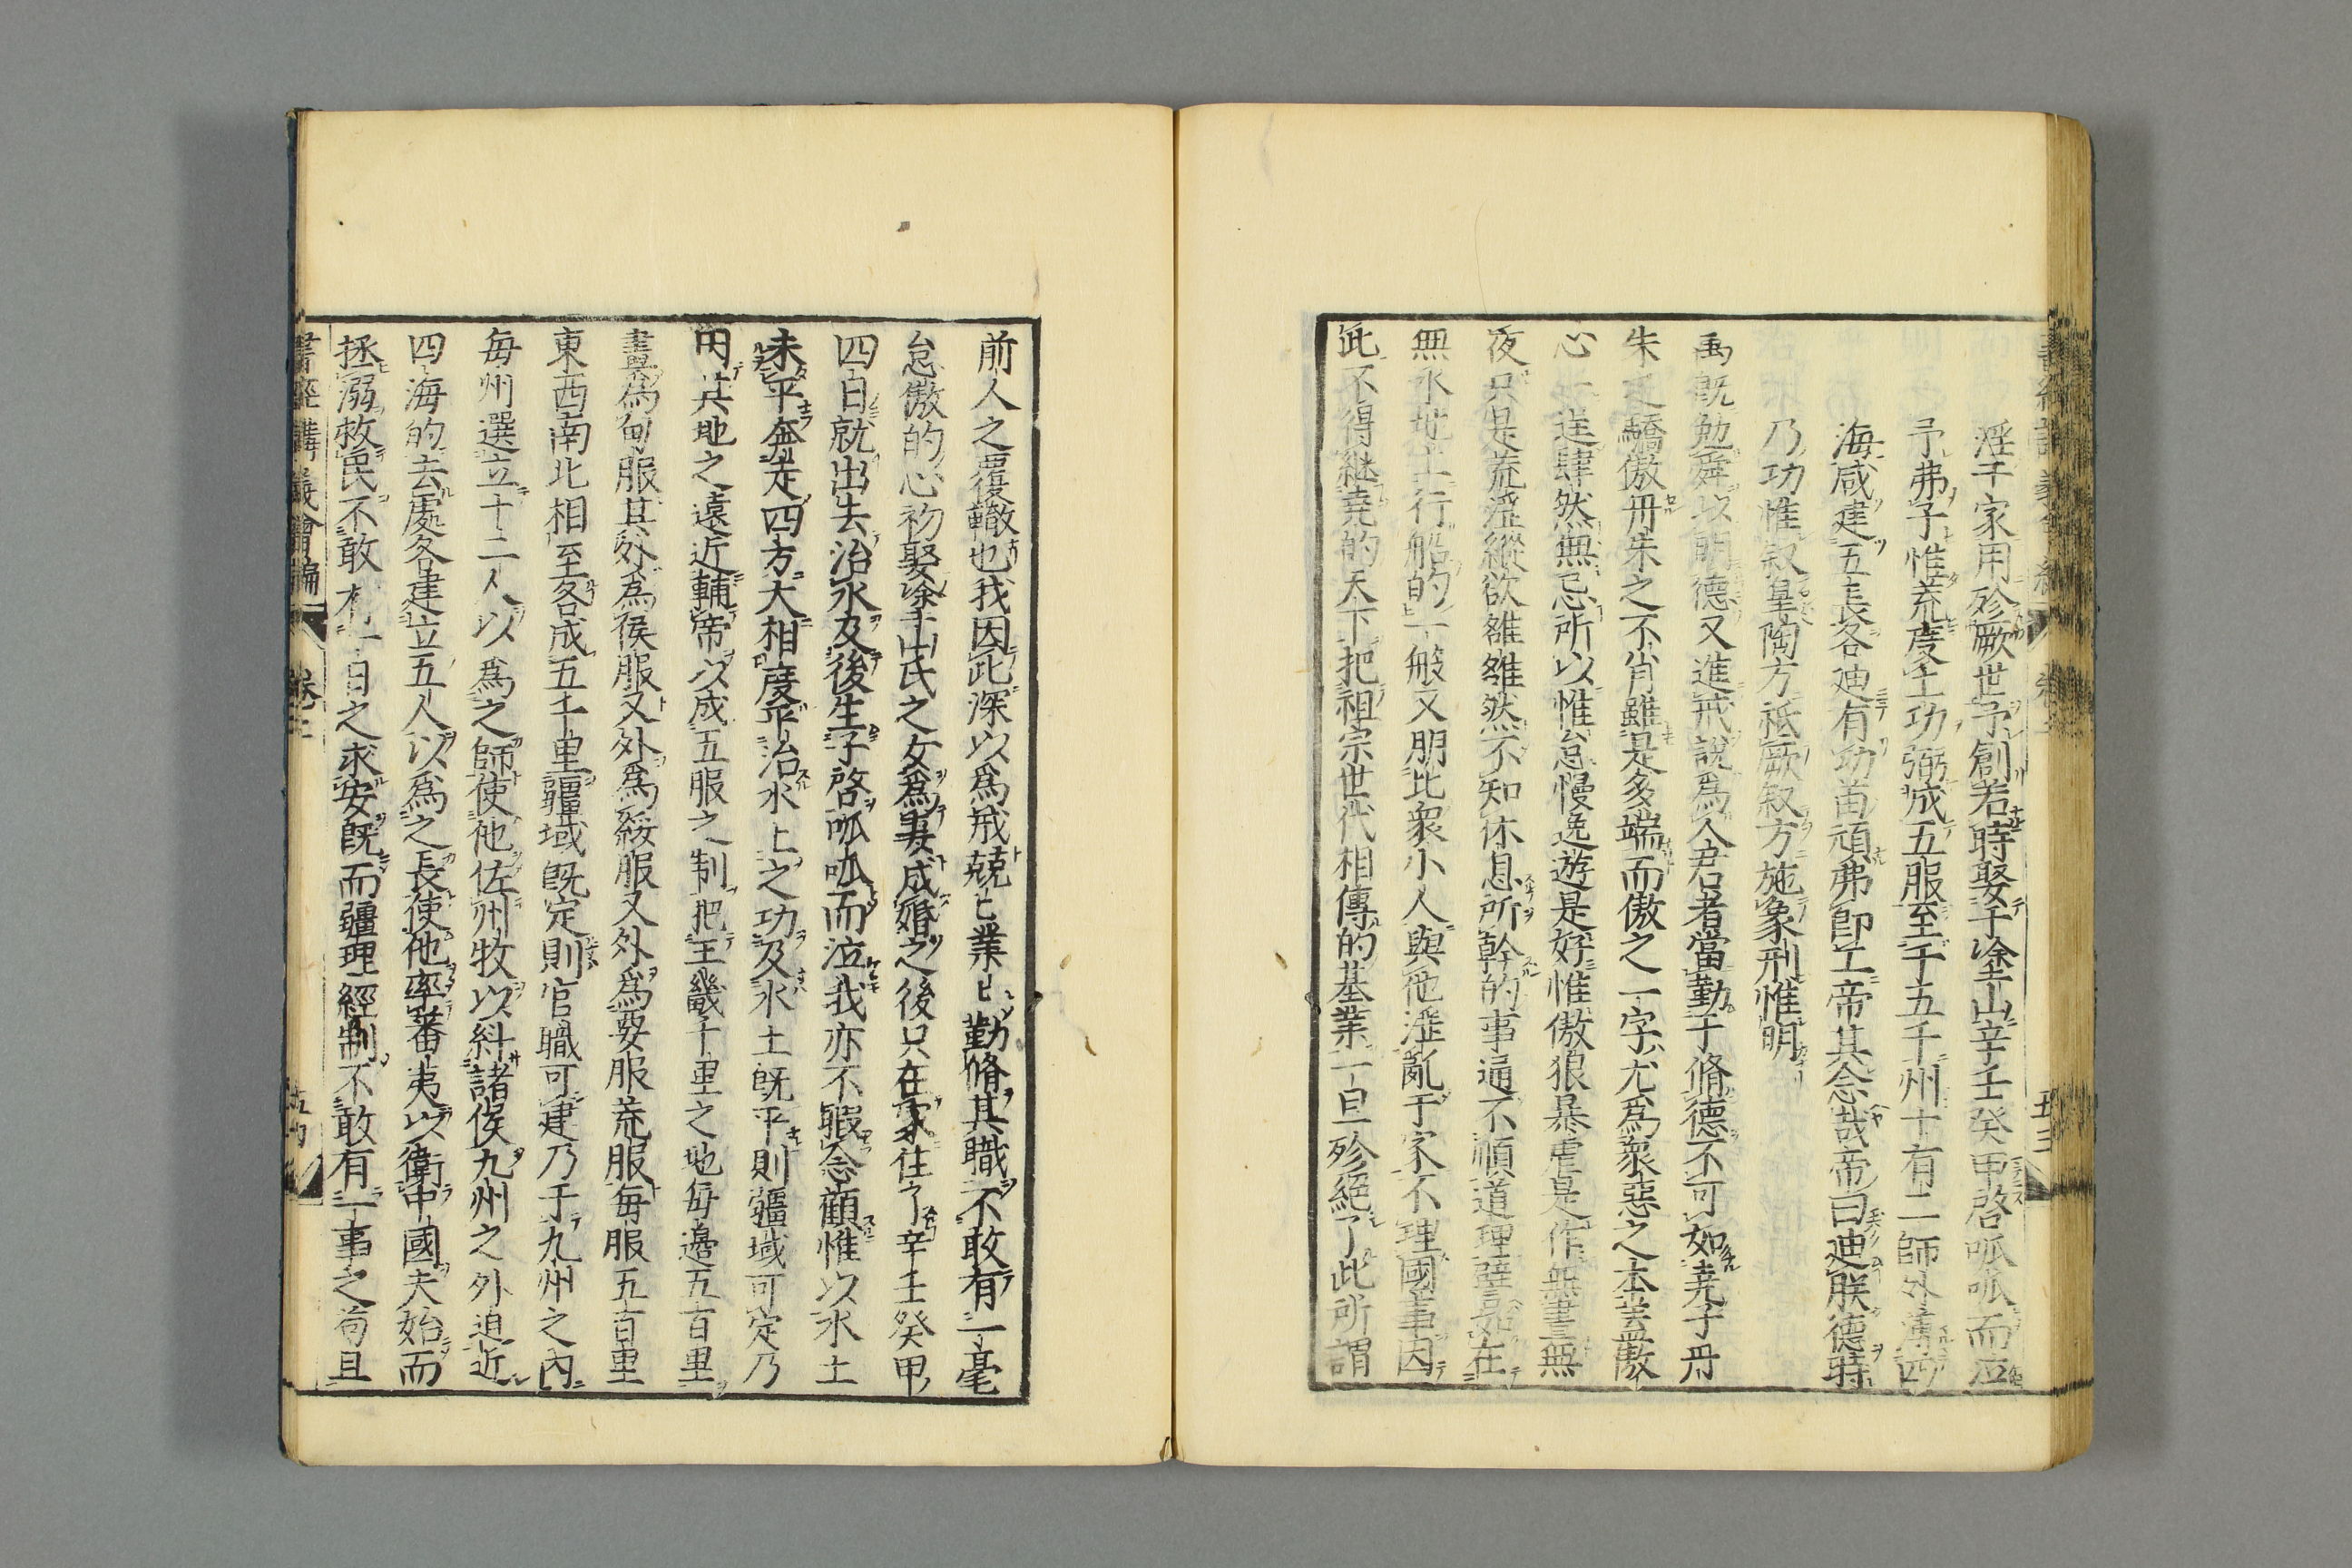 淫于家用殄厥世予創若時娶于塗山辛壬癸甲啓呱呱而泣
予弗子惟荒度土功弼成五服至于五千州十有二師外薄四
海咸建五長各迪有功苗頑弗卽工帝其念哉帝曰迪朕德時
乃功惟叙皇陶方祗厥叙方施象刑惟明
禹既勉舜以明德又進戒說爲人君者當勤于脩德不可如堯子丹
朱之驕傲丹朱之不肖雖是多端而傲之一字尤爲衆惡之本盖傲
心一逞肆然無忌所以惟怠慢逸遊是好惟傲狠暴虐是作無晝無
夜只是荒淫縱欲雒雒然不知休息所幹的事逼不順道理譬如在
無水地上行船的一般又朋比衆小人與他淫亂于家不理國事因
此不得継堯的天下把祖宗世代相傳的基業一旦殄絕了此所謂
前人之覆轍也我因此深以爲戒兢〻業〻勤脩其職不敢有一毫
怠傲的心初娶塗山氏之女爲妻成婚之後只在家住了辛壬癸甲
四日就出去治水及後生子啓呱呱而泣我亦不暇念顧惟以水土
未平奔走四方大相度平治水土之功及水土既平則疆域可定乃
因其地之遠近輔帝以成五服之制把王畿千里之地每邊五百里
畫爲甸服其外爲侯服又外爲綏服又外爲要服荒服每服五百里
東西南北相至各成五千里疆域既定則官職可建乃于九州之內
每州選立十二人以爲之師使他佐州牧以糾諸侯九州之外迫近
四海的去處各建立五人以爲之長使他率蕃夷以衛中國夫始而
拯溺救民不敢有一日之求安既而疆理經制不敢有一事之苟且
書經講義會編 卷二